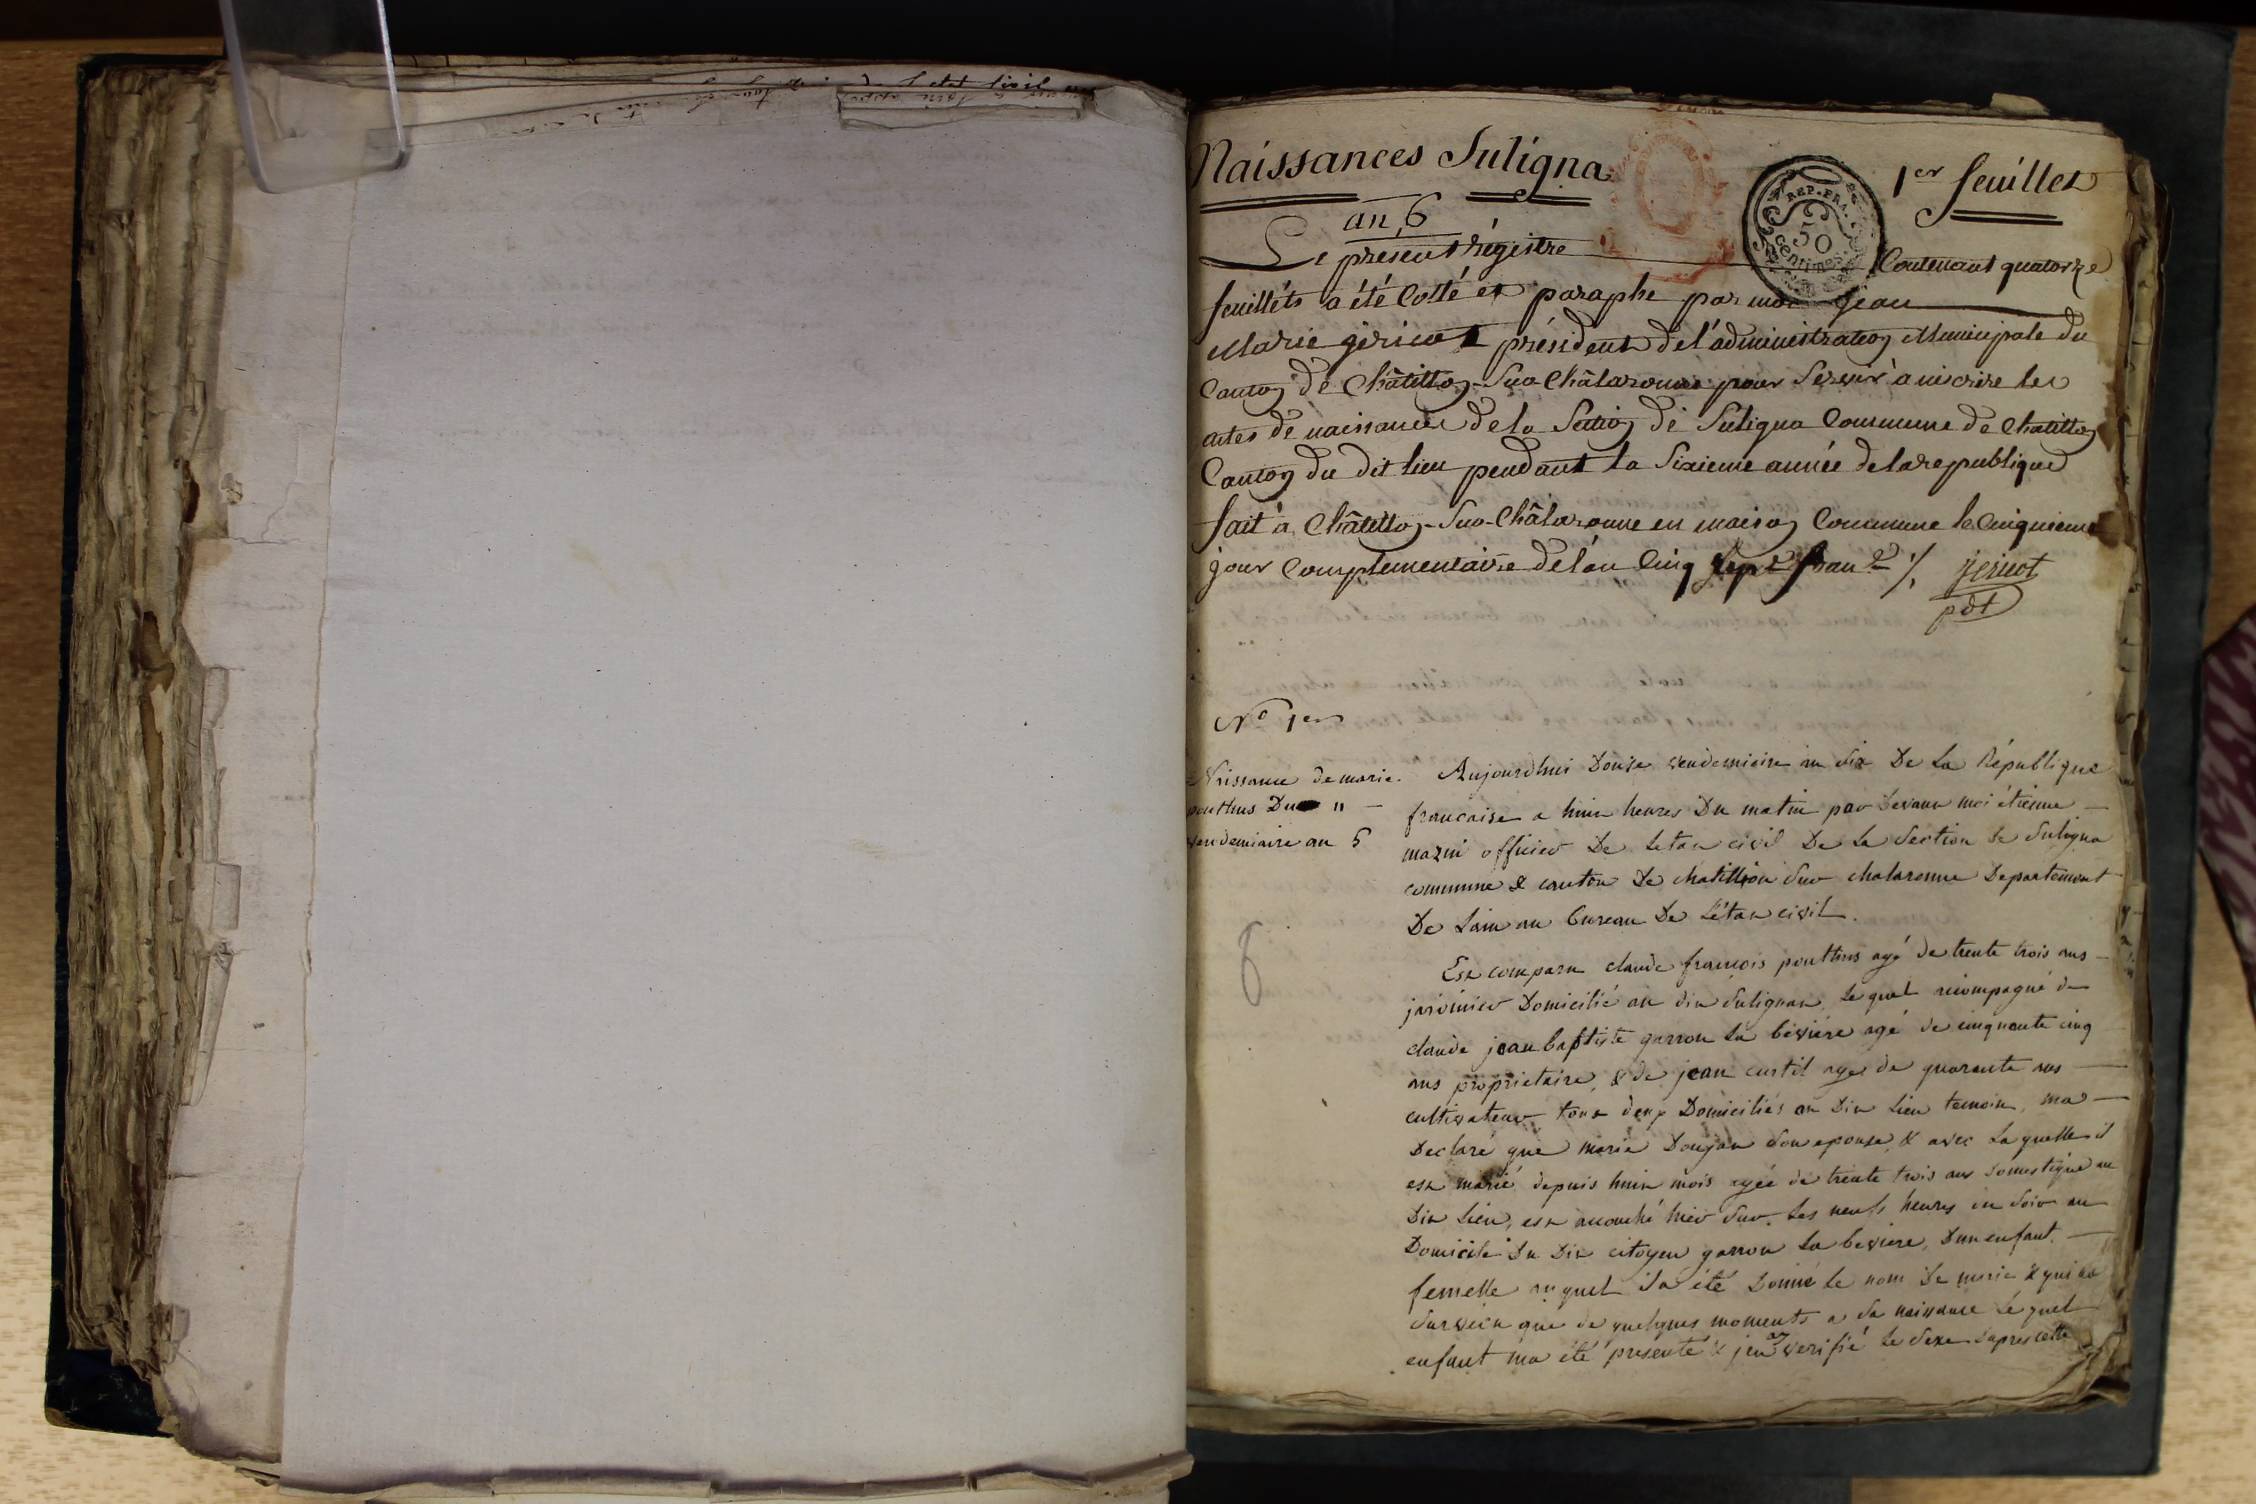 de l'etat Civil
Naissances Suligna
1er feuillet
an 6
REP. FRA.
50
centimes
Le présent régistre Contenant quatorze
feuilléts a été Cotté et paraphé par moi Jean
Marie jéricot président de l'administration Municipale du
Canton de Châtillon-Sur-Châlaronne pour Servir à inscrire les
actes de naissances de la Section de Suligna Commune de Chatillon
Canton du dit lieu pendant la Sixieme année de la republique
fait à Châtillon-Sur-Châlaronne en maison Commune le Cinquieme
jour Complementaire de l'an Cinq
jericot
pdt
No 1er
Naissance de marie
pouthus Du 11
vendemiaire an 6
Aujourdhui Douze vendemiaire an Six De La République
francaise a huit heures Du matin par devant moi étienne
mazui officier De Letat civil De La Section de Suligna
commune & canton De chatillion Sur chalaronne Departement
De Lain au bureau De Létat civil.
Est comparu claude françois pouthus agé de trente trois ans
jardinier Domicilié au dit Sulignat, Lequel accompagné de
claude jean baptiste garron La bévière agé de cinquante cinq
ans proprietaire, & de jean curtil agé de quarante ans
cultivateur tout deux Domiciliés au Dit Lieu temoin, ma
Declaré que marie Donjan Son epouse & avec La quelle il
est marié depuis huit mois agée de trente trois ans domestique au
Dit Lieu, est accouché hier Sur Les neufs heures du Soir au
Domicile Du Dit citoyen garron La beviere, Dun enfant
femelle auquel il a été Donné le nom De marie & qui na
Survecu que de quelques moments a Sa naissance Lequel
enfant ma été presenté & jen ai verifié Le Sexe Dapres cette
6